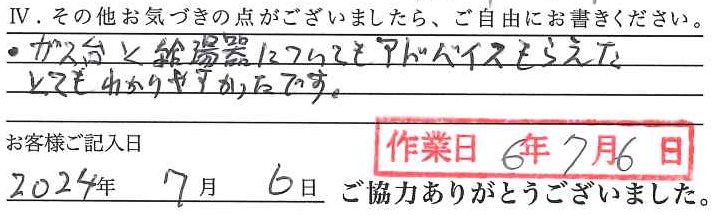 Ⅳ．その他お気づきの点がございましたら、ご自由にお書きください。
・ガス台と給湯器についてもアドバイスもらえた
とてもわかりやすかったです。
お客様ご記入日
作業日 6年7月6日
2024年 7月 6日 ご協力ありがとうございました。